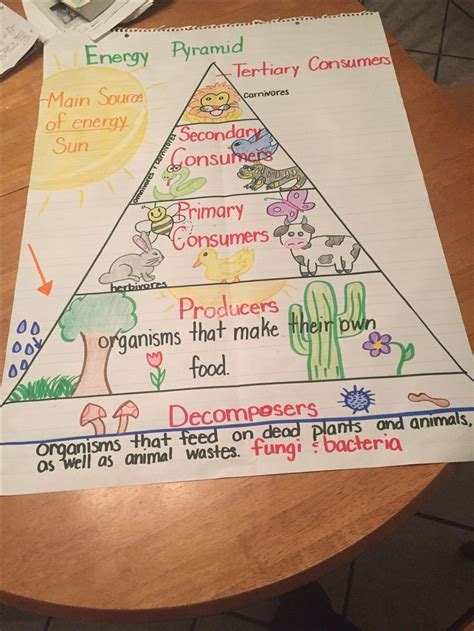 Energy Pyramid
Tertiary Consumers
Main Source
of energy
Sun
carnivores
Secondary
Consumers
omnivores carnivores
Primary
Consumers
herbivores
Producers
organisms that make their own
food.
Decomposers
organisms that feed on dead plants and animals,
as well as animal wastes. fungi & bacteria